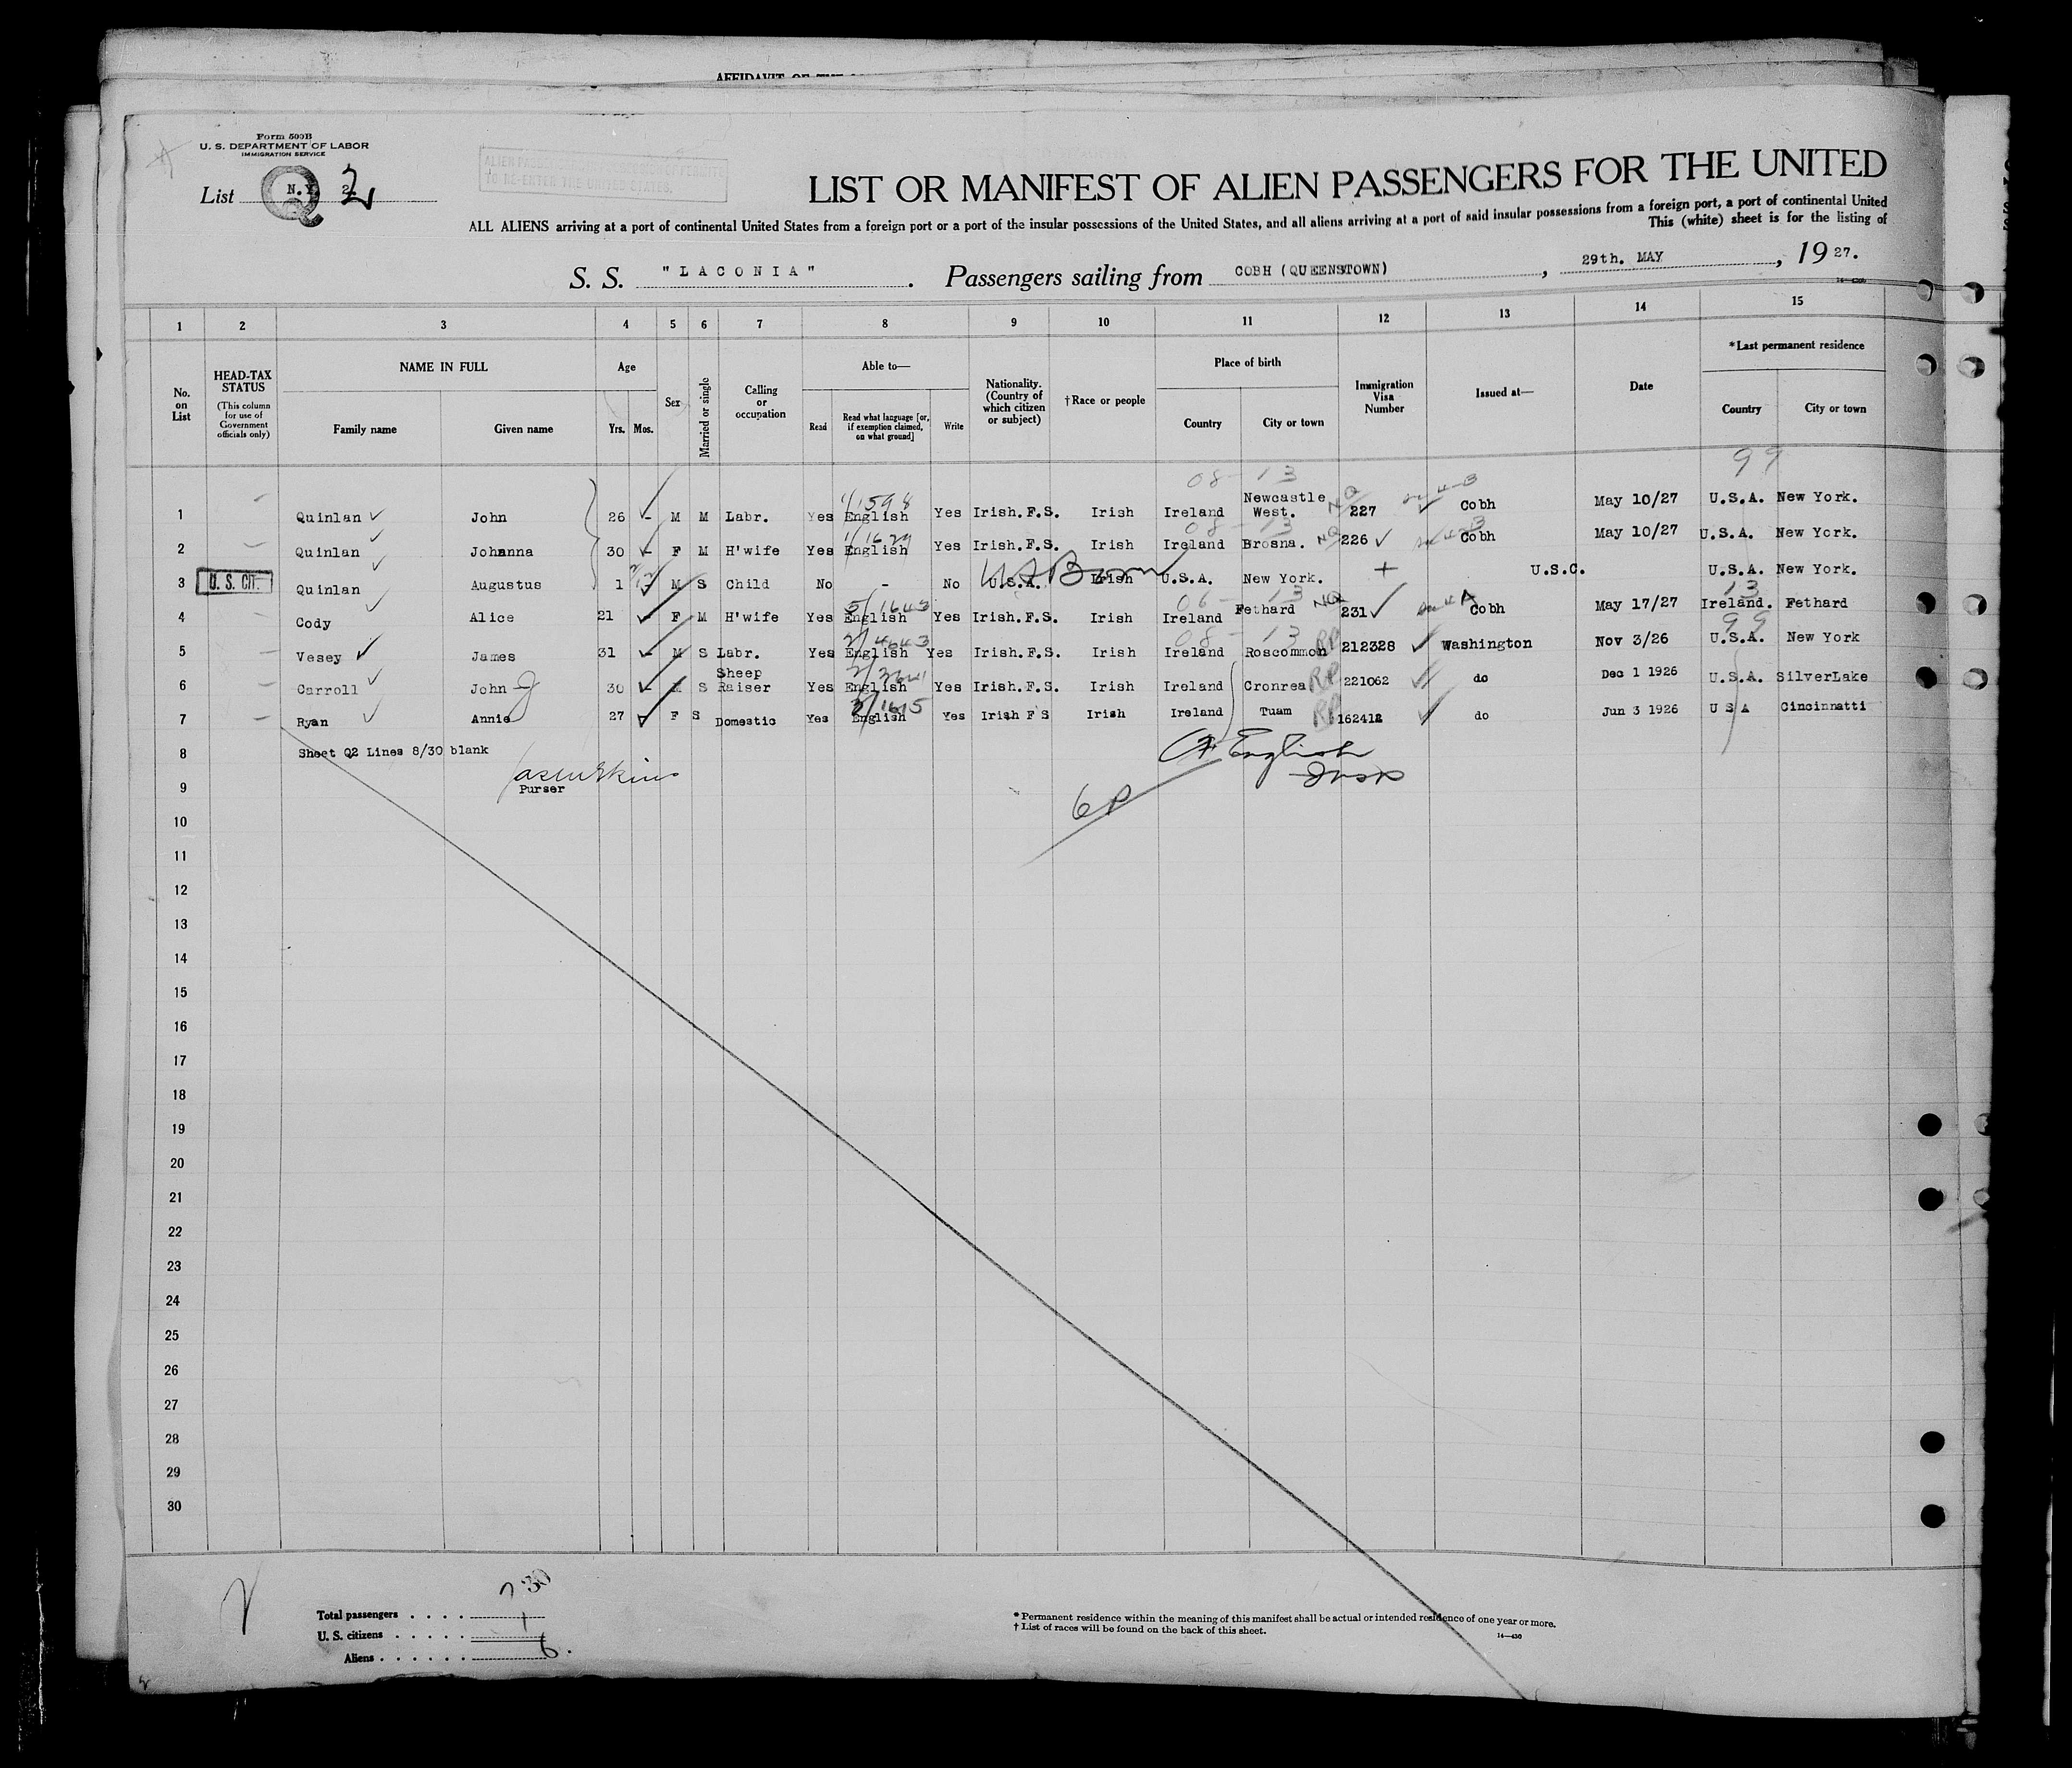 Form 500B
U. S. DEPARTMENT OF LABOR
IMMIGRATION SERVICE
List N.Y. 2 Q 2
LIST OR MANIFEST OF ALIEN PASSENGERS FOR THE UNITED
ALL ALIENS arriving at a port of continental United States from a foreign port or a port of the insular possessions of the United States, and all aliens arriving at a port of said insular possessions from a foreign port, a port of continental United
This (white) sheet is for the listing of
S. S. "LACONIA". Passengers sailing from COBH (QUEENSTOWN), 29th. MAY, 1927.
1 2 3 4 5 6 7 8 9 10 11 12 13 14 15
No. on List
HEAD-TAX STATUS
(This column for use of Government officials only)
NAME IN FULL
Family name Given name
Age
Yrs. Mos.
Sex
Married or single
Calling or occupation
Able to—
Read
Read what language [or, if exemption claimed, on what ground]
Write
Nationality. (Country of which citizen or subject)
†Race or people
Place of birth
Country City or town
Immigration Visa Number
Issued at—
Date
*Last permanent residence
Country City or town
08-13 99
1 Quinlan John 26 - M M Labr. Yes 1/1598 English Yes Irish.F.S. Irish Ireland Newcastle West. NQ 227 Cobh May 10/27 U.S.A. New York.
08-13
2 Quinlan Johanna 30 - F M H'wife Yes 1/1629 English Yes Irish.F.S. Irish Ireland Brosna. NQ 226 Cobh May 10/27 U.S.A. New York.
3 U. S. CIT. Quinlan Augustus 1 - M S Child No - No U.S.A. Irish U.S.A. New York. + U.S.C. U.S.A. New York.
06-13 13
4 Cody Alice 21 - F M H'wife Yes 5/1643 English Yes Irish.F.S. Irish Ireland Fethard NQ 231 Cobh May 17/27 Ireland. Fethard
08-13 99
5 Vesey James 31 - M S Labr. Yes 2/4643 English Yes Irish.F.S. Irish Ireland Roscommon RP 212328 Washington Nov 3/26 U.S.A. New York
6 Carroll John J 30 - M S Sheep Raiser Yes English Yes Irish.F.S. Irish Ireland Cronrea RP 221062 do Dec 1 1926 U.S.A. SilverLake
7 Ryan Annie 27 F S Domestic Yes English Yes Irish F S Irish Ireland Tuam RP 162412 do Jun 3 1926 U S A Cincinnatti
8 Sheet Q2 Lines 8/30 blank
English
9 Purser
6P
10
11
12
13
14
15
16
17
18
19
20
21
22
23
24
25
26
27
28
29
30
30
Total passengers . . . . 7
U. S. citizens . . . . . 1
Aliens . . . . . . 6.
* Permanent residence within the meaning of this manifest shall be actual or intended residence of one year or more.
† List of races will be found on the back of this sheet.
14—430